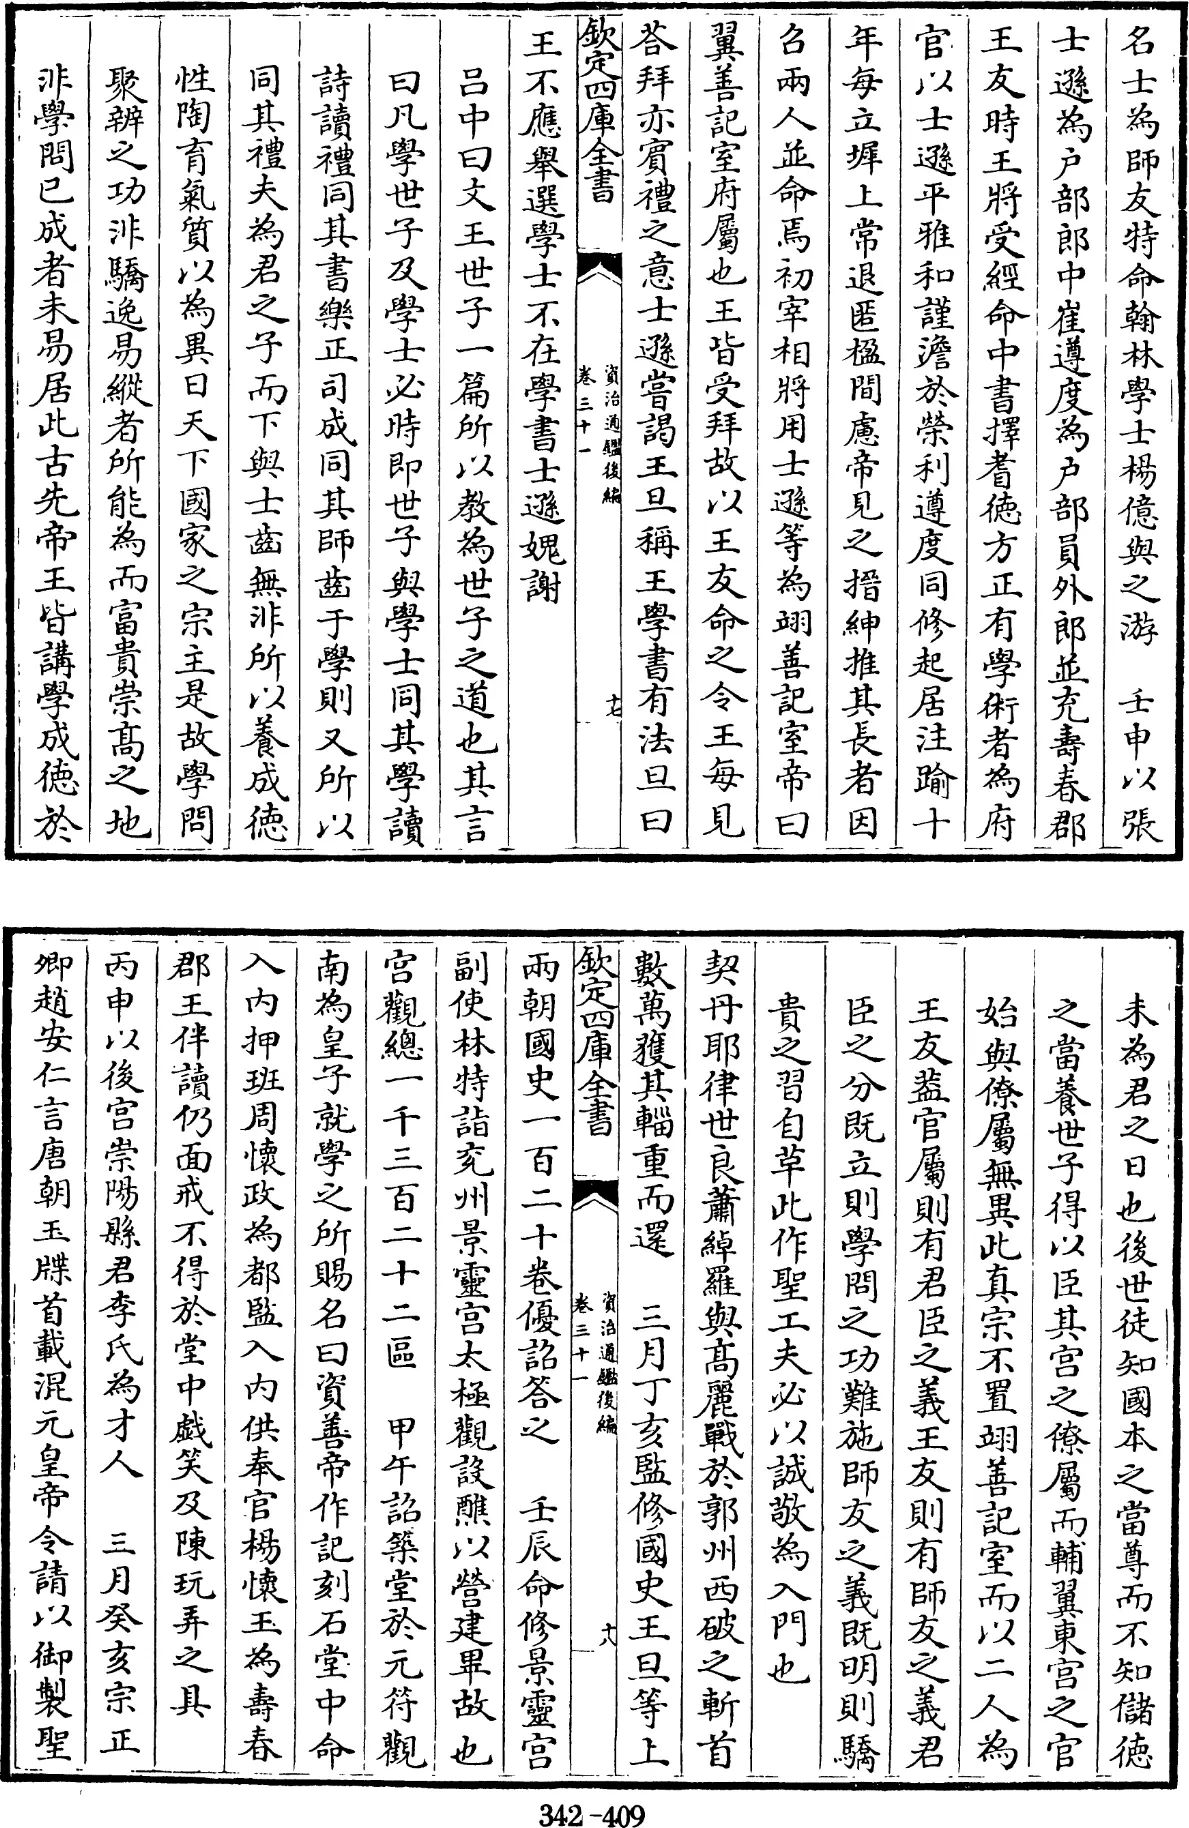 名士為師友特命翰林學士楊億與之游　壬申以張
士遜為户部郎中崔遵度為户部員外郎並充壽春郡
王友時王將受經命中書擇耆徳方正有學術者為府
官以士遜平雅和謹澹於榮利遵度同修起居注踰十
年每立墀上常退匿楹間慮帝見之搢紳推其長者因
召兩人並命焉初宰相將用士遜等為翊善記室帝曰
翼善記室府屬也王皆受拜故以王友命之令王每見
荅拜亦賓禮之意士遜嘗謁王旦稱王學書有法旦曰
欽定四庫全書
資治通鑑後編
卷三十一
十七
王不應舉選學士不在學書士遜媿謝
吕中曰文王世子一篇所以教為世子之道也其言
曰凡學世子及學士必時即世子與學士同其學讀
詩讀禮同其書樂正司成同其師齒于學則又所以
同其禮夫為君之子而下與士齒無非所以養成徳
性陶育氣質以為異日天下國家之宗主是故學問
聚辨之功非驕逸易縱者所能為而富貴崇髙之地
非學問已成者未易居此古先帝王皆講學成徳於
未為君之日也後世徒知國本之當尊而不知儲徳
之當養世子得以臣其宫之僚屬而輔翼東宫之官
始與僚屬無異此真宗不置翊善記室而以二人為
王友葢官屬則有君臣之義王友則有師友之義君
臣之分既立則學問之功難施師友之義既明則驕
貴之習自草此作聖工夫必以誠敬為入門也
契丹耶律世良蕭綽羅與髙麗戰於郭州西破之斬首
數萬獲其輜重而還　三月丁亥監修國史王旦等上
欽定四庫全書
資治通鑑後編
卷三十一
十八
兩朝國史一百二十卷優詔答之　壬辰命修景靈宫
副使林特詣兖州景靈宫太極觀設醮以營建畢故也
宫觀總一千三百二十二區　甲午詔築堂於元符觀
南為皇子就學之所賜名曰資善帝作記刻石堂中命
入内押班周懷政為都監入内供奉官楊懷玉為壽春
郡王伴讀仍面戒不得於堂中戯笑及陳玩弄之具
丙申以後宫崇陽縣君李氏為才人　三月癸亥宗正
卿趙安仁言唐朝玉牒首載混元皇帝令請以御製聖
342-409